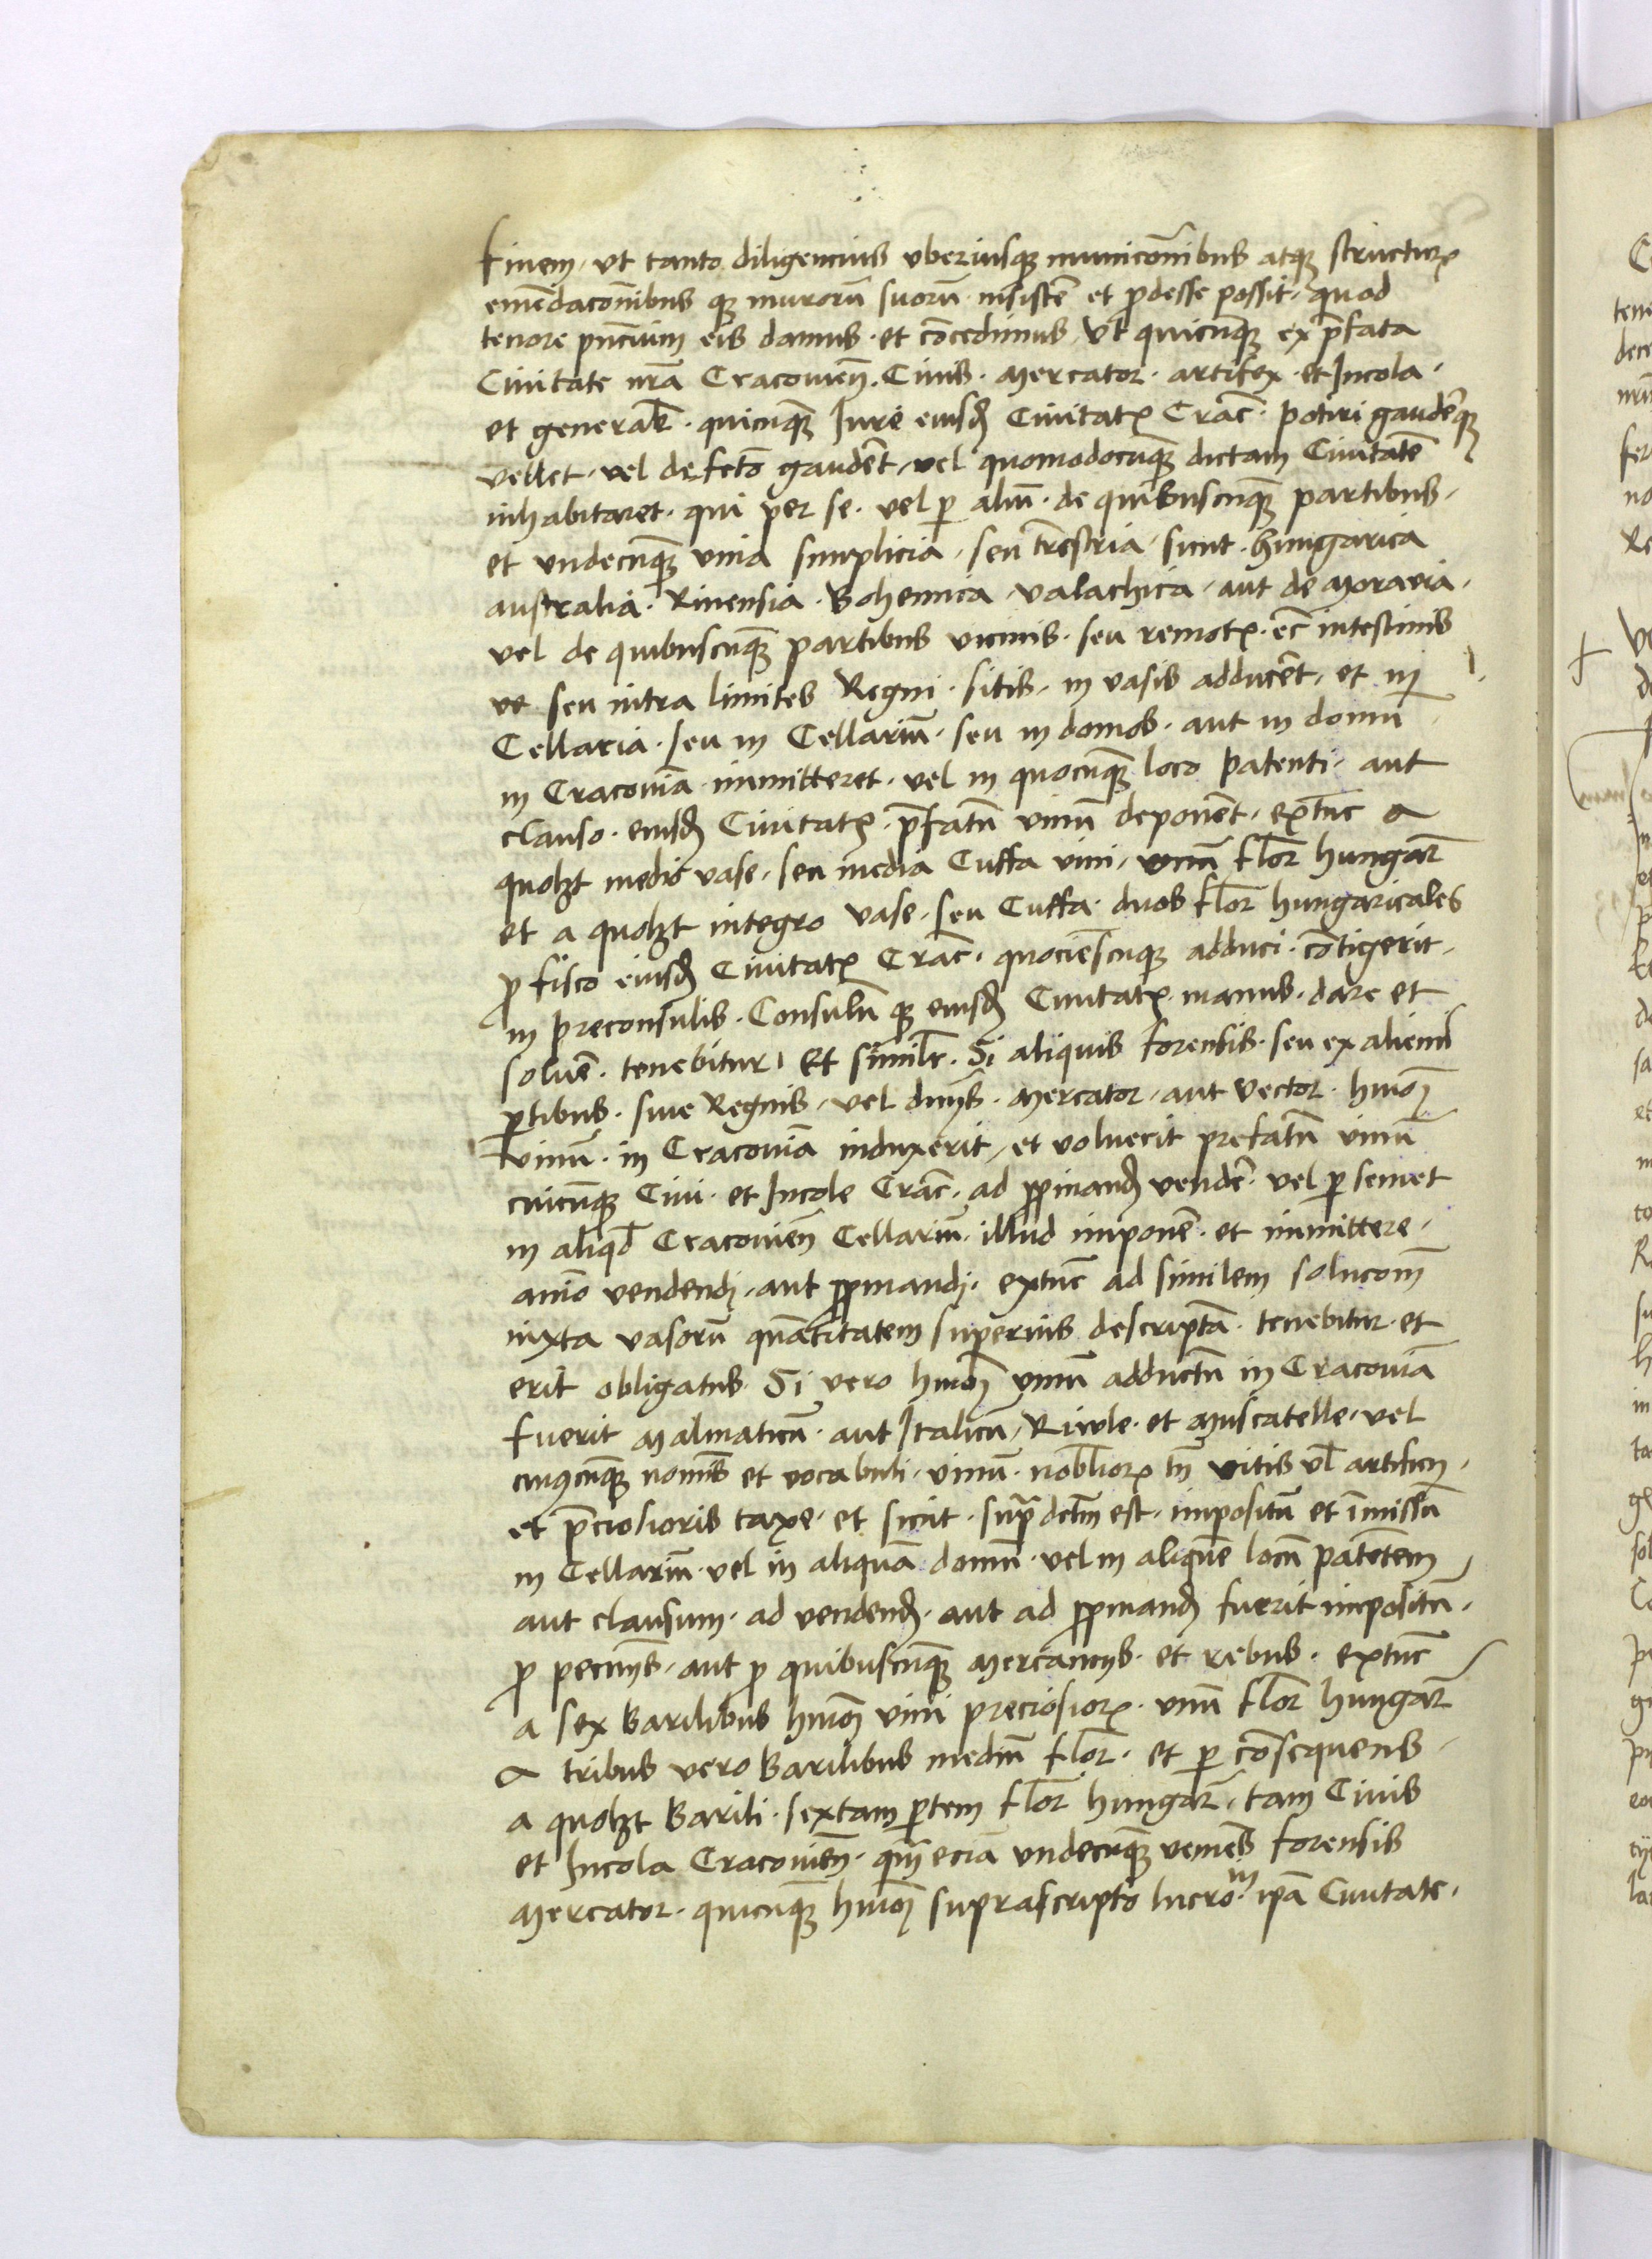 finem, vt tanto diligencius vberiusqꝫ municoĩbus atqꝫ structurꝭ
emẽdacoĩbus qꝫ murorũ suorũ insistẽ et ꝓdesse possit, quod
tenore pñcium eis damus · et cõcedimus vt quicũqꝫ ex p̃fata
Ciuitate nr̃a Cracouien̄ · Ciuis · Mercator · artifex · et Incola ·
et generalr̃ · quicũqꝫ Iure eiusđ Ciuitatꝭ Crac̃ · potiri gauderẽqꝫ
vellet, vel de fc̃to gaudẽt, vel quomodocũqꝫ dictam Ciuitatẽ
inhabitaret · qui per se · vel ꝑ aliũ · de quibuscũqꝫ partibus ·
et vndecũqꝫ vina simplicia · seu tr̃estria · sunt · hungarica
australia · Rinensia · Bohemica · valachica · aut de Morauia ·
vel de quibuscũqꝫ partibus vicinis · seu remotꝭ · ec̃ intestinis
ve seu intra limites Regni · sitis · in vasis adducẽt, et in
Cellaria · seu in Cellariũ · seu in domos · aut in domũ
in Cracouiã immitteret · vel in quocũqꝫ loco patenti · aut
clauso · eiusđ Ciuitatꝭ · p̃fatũ vinũ deponẽt, extũc a
quolꝫt medio vase, seu media Cuffa vini, vnũ flor̃ hungar̃
et a quolꝫt integro vase · seu Cuffa · duos flor̃ hungaricales
ꝓ fisco eiusđ Ciuitatꝭ Crac̃ · quociẽscũqꝫ adduci · cõtigerit ·
in preconsulis · Consulũ qꝫ eiusđ Ciuitatꝭ · manus · dare et
soluẽ · tenebitur, Et similr̃ · Si aliquis forensis · seu ex alienis
ꝑtibus · siue Regnis, vel dnijs · Mercator, aut vector · hmõi
vinũ · in Cracouiã induxerit, et voluerit prefatũ vinũ
cuicũqꝫ Ciui · et Incole Crac̃ · ad ꝓpinanđ vendẽ · vel ꝑ semet
in aliqđ Cracouien̄ Cellariũ · illud imponẽ · et immittere ·
aĩo vendendi, aut ꝓpinandi · extũc ad similem solucoẽm
iuxta vasorũ quãtitatem superius descriptã · tenebitur · et
erit obligatus · Si vero hmõi vinũ adductũ in Cracouiã
fuerit Malmaticũ · aut Italicũ, Riuole · et Muscatelle · vel
cuiꝰcũqꝫ nois̃ et vocabuli, vinũ · nobliorꝭ tñ vitis vl̃ artificij ·
et p̃ciosioris taxe · et sicut · supra dc̃tm est · impositũ et ĩmissũ
in Cellariũ · vel in aliquã domũ · vel in aliquẽ locũ patẽtem
aut clausum · ad vendenđ · aut ad ꝓpinanđ fuerit impositũ ·
ꝓ pecunijs · aut ꝓ quibuscũqꝫ Mercancijs · et rebus · extũc
a sex Barilibus hmõi vini preciosiorꝭ · vnũ flor̃ hungar̃
a tribus vero Barilibus mediũ flor̃ · et ꝑ cõsequens ·
a quolꝫt Barili · sextam ꝑtem flor̃ hungar̃ · tam Ciuis
et Incola Cracouien̄ · qm̃ eciã vndecũqꝫ veniẽs forensis
Mercator · quicũqꝫ hmõi suprascripto lucro · in ipã Ciuitate ·